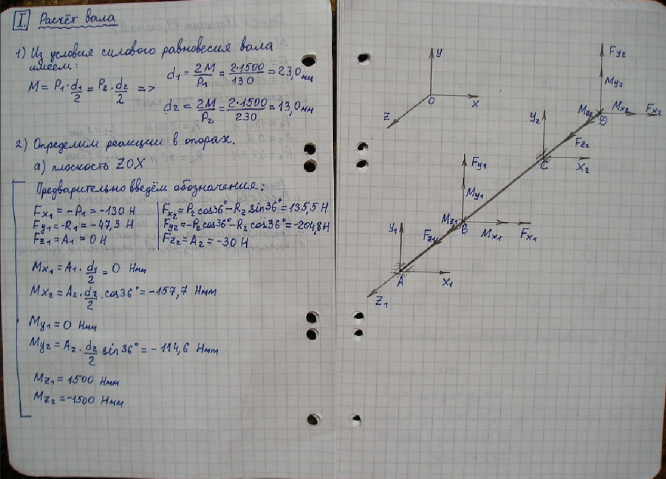 I. Расчёт вала
1) Из условия силового равновесия вала
имеем:
M = P₁·d₁/2 = P₂·d₂/2 =>
d₁ = 2M/P₁ = 2·1500/130 = 23,0 мм
d₂ = 2M/P₂ = 2·1500/230 = 13,0 мм
2) Определим реакции в опорах.
а) плоскость ZOX
Предварительно введём обозначения:
Fx₁ = -P₁ = -130 Н
Fy₁ = -R₁ = -47,3 Н
Fz₁ = A₁ = 0 Н
Fx₂ = P₂cos36° - R₂sin36° = 135,5 Н
Fy₂ = -P₂cos36° - R₂cos36° = -204,8 Н
Fz₂ = A₂ = -30 Н
Mx₁ = A₁·d₁/2 = 0 Нмм
Mx₂ = A₂·d₂/2·cos36° = -157,7 Нмм
My₁ = 0 Нмм
My₂ = A₂·d₂/2 sin36° = -114,6 Нмм
Mz₁ = 1500 Нмм
Mz₂ = -1500 Нмм
y
O
x
z
Fy₂
My₂
Mz₂
D
Mx₂
Fx₂
Fz₂
y₂
C
x₂
Fy₁
My₁
Mz₁
B
Fz₁
Mx₁
Fx₁
y₁
A
x₁
z₁